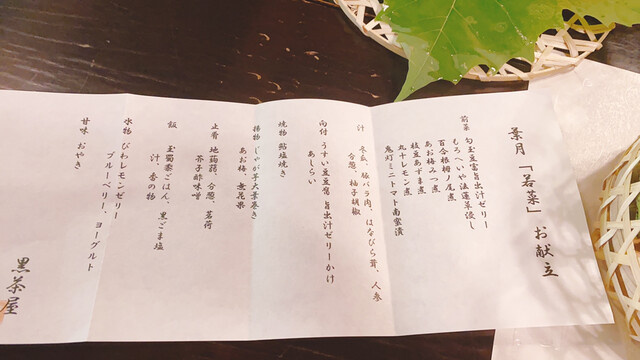 葉月「若菜」お献立
前菜 勾玉豆富旨出汁ゼリー
もろへいや法蓮草浸し
百合根梅ノ尾煮
あお梅みつ煮
枝豆あずま煮
丸十レモン煮
鬼灯ミニトマト南蛮漬
汁 冬瓜、豚バラ肉、はなびら茸、人参
分葱、柚子胡椒
向付 うすい豆豆腐 旨出汁ゼリーかけ
あしらい
焼物 鮎塩焼き
揚物 じゃが芋大葉巻き
あお梅、無花果
止肴 地蒟蒻、分葱、茗荷
芥子酢味噌
飯 玉蜀黍ごはん、黒ごま塩
汁、香の物
水物 びわレモンゼリー
ブルーベリー、ヨーグルト
甘味 おやき
黒茶屋